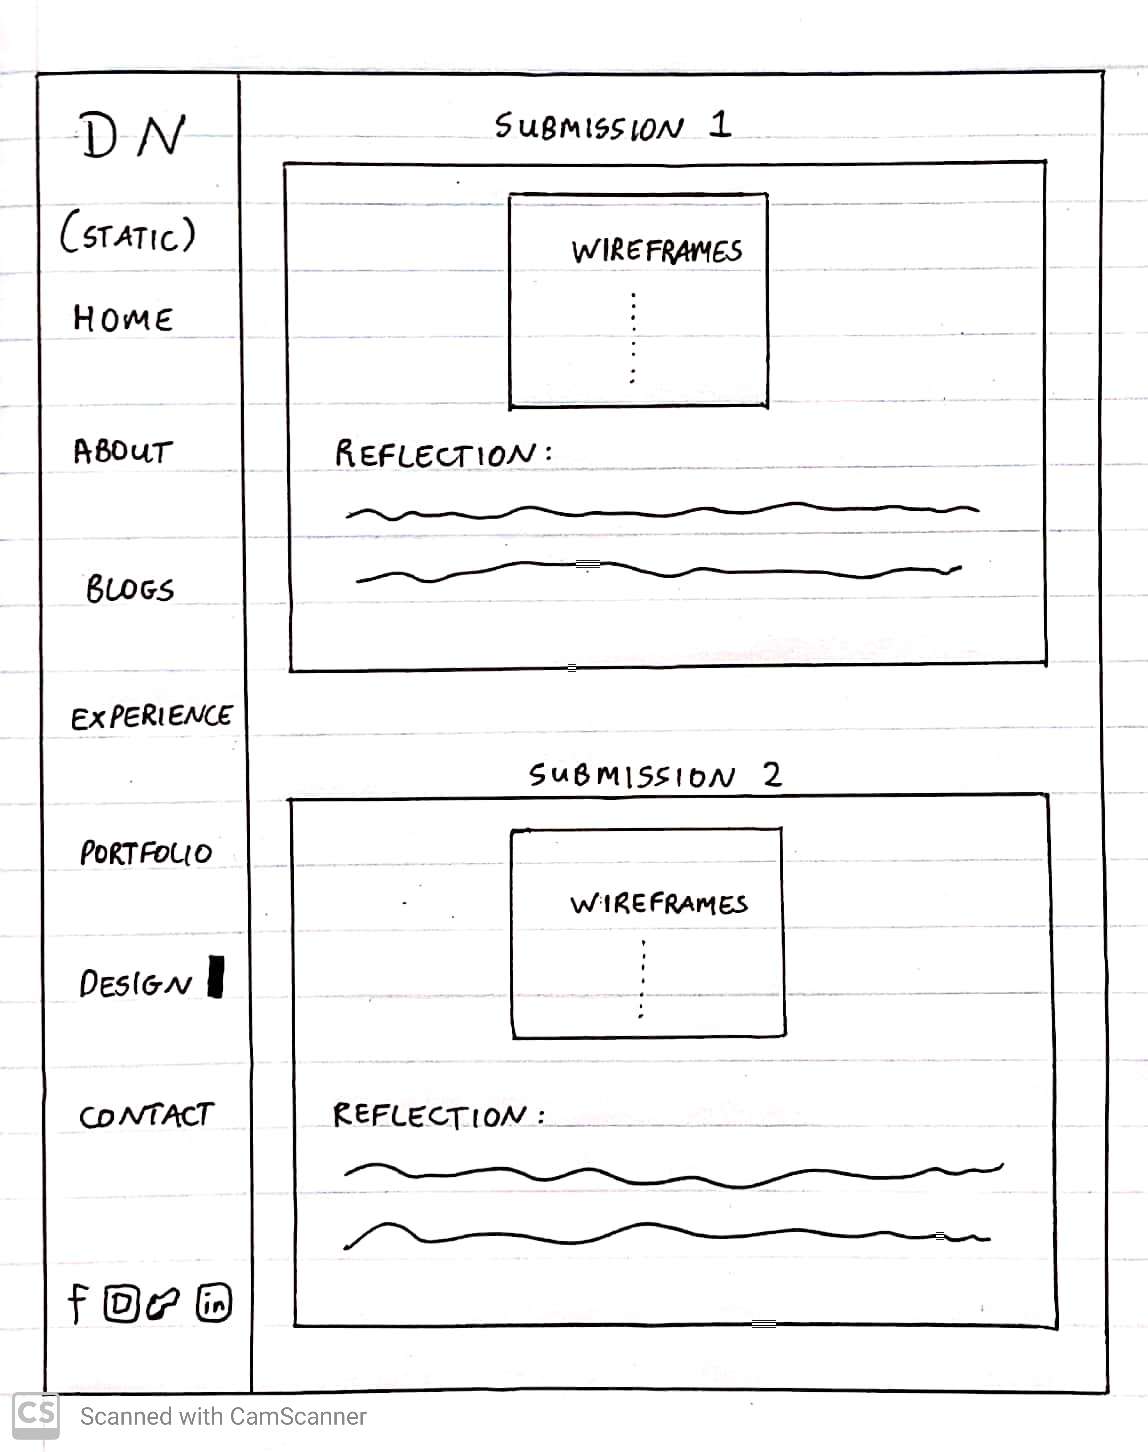 DN
(STATIC)
HOME
ABOUT
BLOGS
EXPERIENCE
PORTFOLIO
DESIGN
CONTACT
f in
SUBMISSION 1
WIREFRAMES
REFLECTION:
SUBMISSION 2
WIREFRAMES
REFLECTION:
CS Scanned with CamScanner